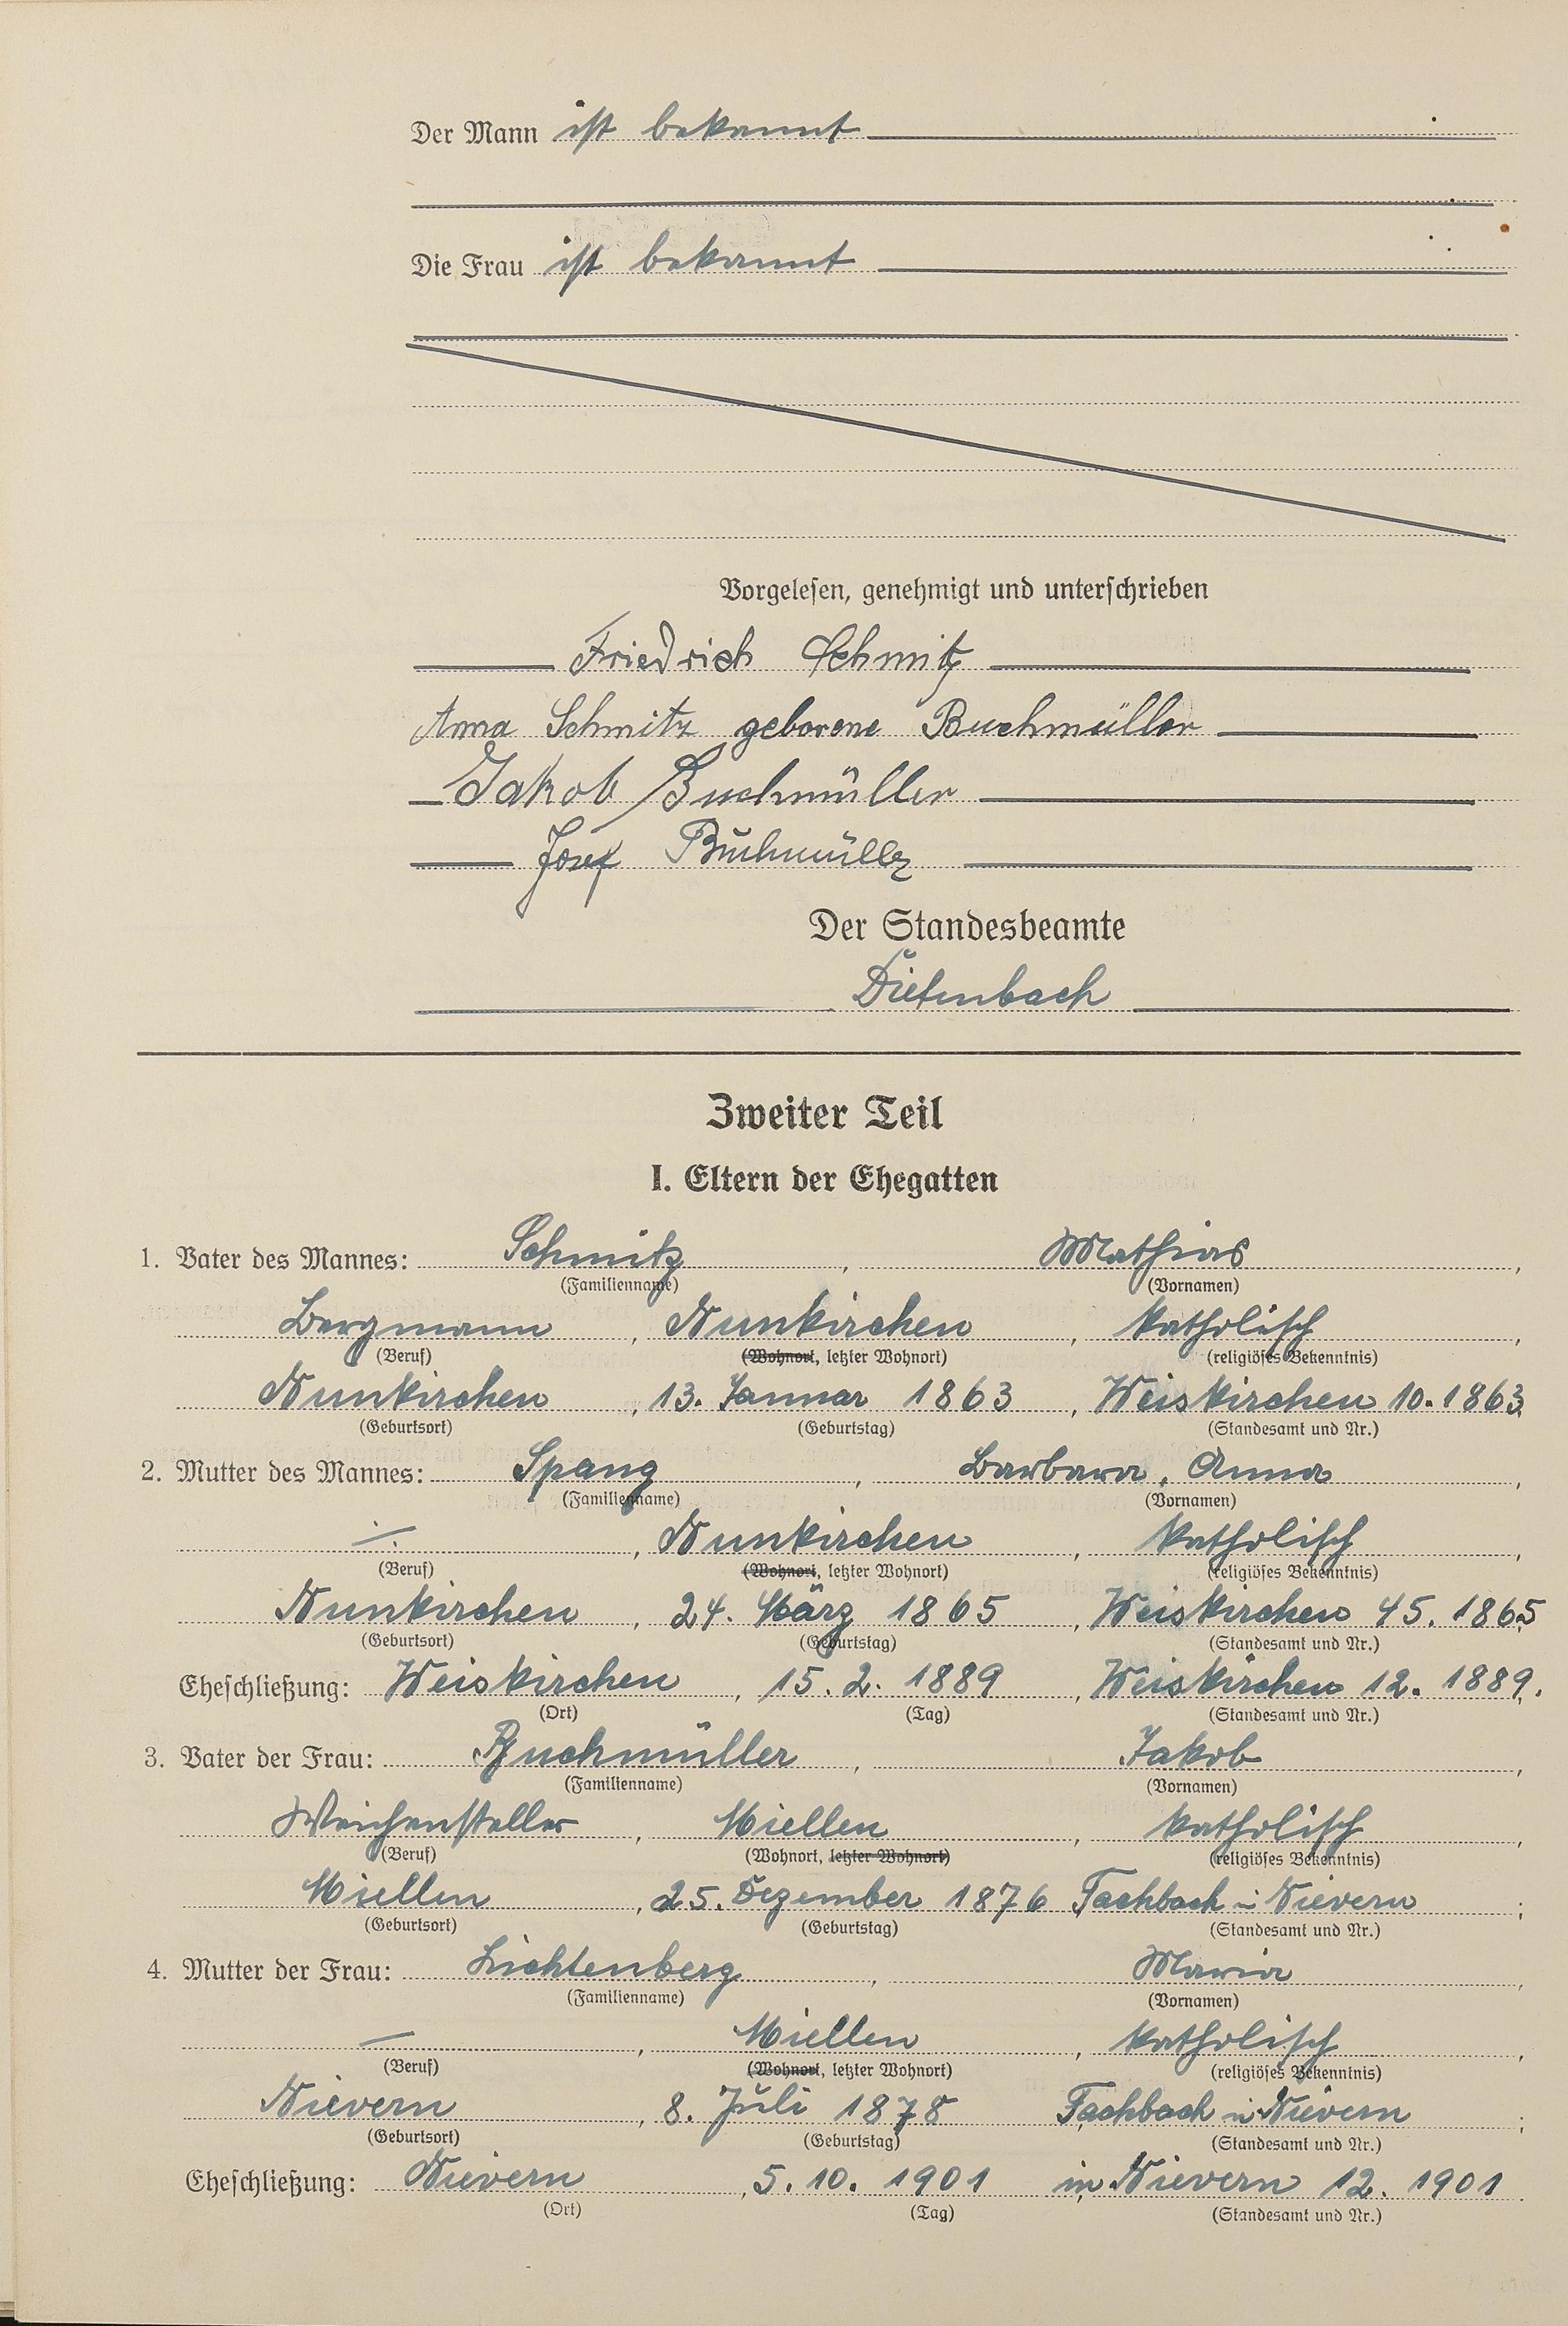 Der Mann ist bekannt
Die Frau ist bekannt
Vorgelesen, genehmigt und unterschrieben
Friedrich Schmitz
Anna Schmitz geborene Buchmüller
Jakob Buchmüller
Josef Buchmüller
Der Standesbeamte
Diefenbach
Zweiter Teil
I. Eltern der Ehegatten
1. Vater des Mannes: Schmitz, Mathias,
(Familienname) (Vornamen)
Bergmann, Nunkirchen, katholisch,
(Beruf) (Wohnort, letzter Wohnort) (religiöses Bekenntnis)
Nunkirchen, 13. Januar 1863, Weiskirchen 10. 1863;
(Geburtsort) (Geburtstag) (Standesamt und Nr.)
2. Mutter des Mannes: Spang, Barbara, Anna,
(Familienname) (Vornamen)
⁒, Nunkirchen, katholisch,
(Beruf) (Wohnort, letzter Wohnort) (religiöses Bekenntnis)
Nunkirchen, 24. März 1865, Weiskirchen 45. 1865;
(Geburtsort) (Geburtstag) (Standesamt und Nr.)
Eheschließung: Weiskirchen, 15. 2. 1889, Weiskirchen 12. 1889.
(Ort) (Tag) (Standesamt und Nr.)
3. Vater der Frau: Buchmüller, Jakob,
(Familienname) (Vornamen)
Weichensteller, Miellen, katholisch,
(Beruf) (Wohnort, letzter Wohnort) (religiöses Bekenntnis)
Miellen, 25. Dezember 1876 Fachbach in Nievern;
(Geburtsort) (Geburtstag) (Standesamt und Nr.)
4. Mutter der Frau: Lichtenberg, Maria,
(Familienname) (Vornamen)
—, Miellen, katholisch,
(Beruf) (Wohnort, letzter Wohnort) (religiöses Bekenntnis)
Nievern, 8. Juli 1878 Fachbach in Nievern;
(Geburtsort) (Geburtstag) (Standesamt und Nr.)
Eheschließung: Nievern, 5. 10. 1901 in Nievern 12. 1901.
(Ort) (Tag) (Standesamt und Nr.)